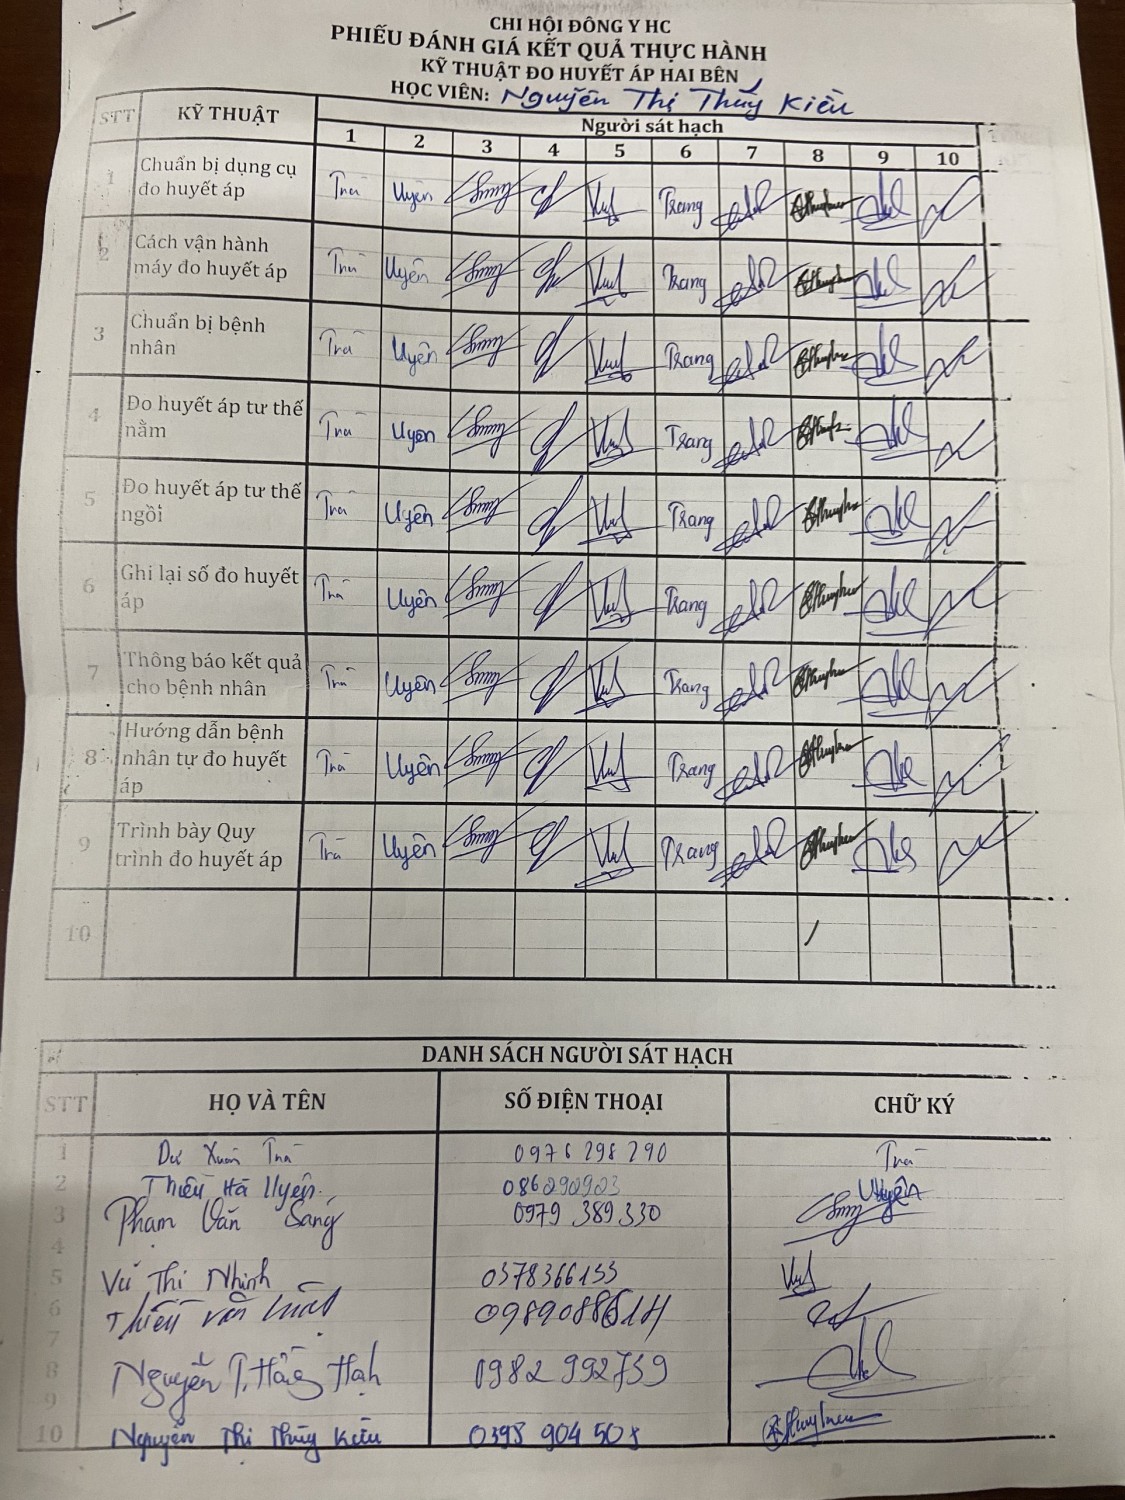 CHI HỘI ĐÔNG Y HC
PHIẾU ĐÁNH GIÁ KẾT QUẢ THỰC HÀNH
KỸ THUẬT ĐO HUYẾT ÁP HAI BÊN
HỌC VIÊN: Nguyễn Thị Thúy Kiều
STT KỸ THUẬT Người sát hạch
1 2 3 4 5 6 7 8 9 10
1 Chuẩn bị dụng cụ đo huyết áp Trà Uyên Trang
2 Cách vận hành máy đo huyết áp Trà Uyên Trang
3 Chuẩn bị bệnh nhân Trà Uyên Trang
4 Đo huyết áp tư thế nằm Trà Uyên Trang
5 Đo huyết áp tư thế ngồi Trà Uyên Trang
6 Ghi lại số đo huyết áp Trà Uyên Trang
7 Thông báo kết quả cho bệnh nhân Trà Uyên Trang
8 Hướng dẫn bệnh nhân tự đo huyết áp Trà Uyên Trang
9 Trình bày Quy trình đo huyết áp Trà Uyên Trang
10
DANH SÁCH NGƯỜI SÁT HẠCH
STT HỌ VÀ TÊN SỐ ĐIỆN THOẠI CHỮ KÝ
1 Dư Xuân Trà 0976 298 290 Trà
2 Thiều Hà Uyên 086292923 Uyên
3 Phạm Văn Sang 0979 389 330
4
5 Vũ Thị Nhinh 0378366133
6 Thiều Văn 0989088614
7
8 Nguyễn T. Hồng Hạnh 0982 992759
9
10 Nguyễn Thị Thúy Kiều 0398 904 508